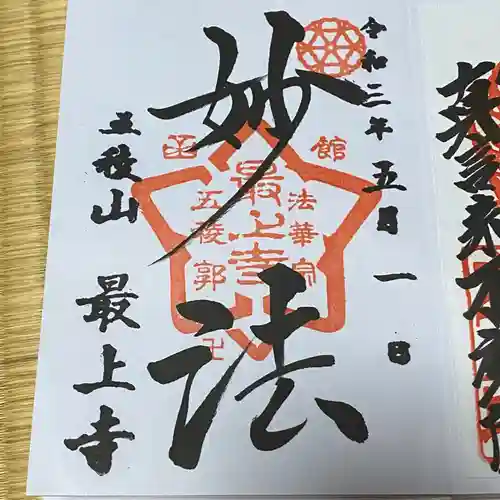 令和三年五月一日
妙法
函館
五稜郭
最上寺
法華宗
卍
五稜山 最上寺